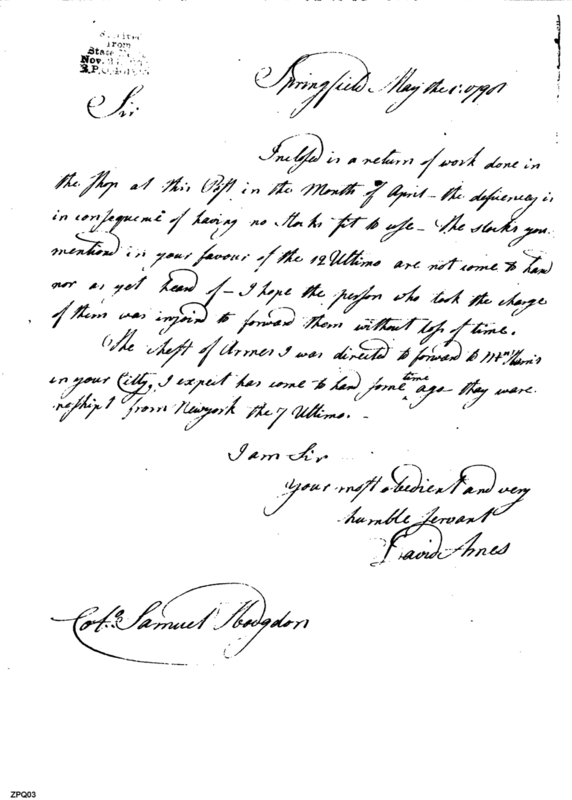 from
State
Nov.
Springfield May the 1: 1798
Sir
Inclosed is a return of work done in
the Shop at this Post in the Month of April – the deficiency is
in consequence of having no Stocks fit to use – The stocks you
mention'd in your favour of the 12 Ultimo are not come to han
nor as yet heard of – I hope the person who took the charge
of them was injoind to forward them without loss of time.
The chest of Armes I was directed to forward to Mr Harris
in your Citty, I expect has come to hand some time ago they ware
reshipt from Newyork the 7 Ultimo. –
I am Sir
your most obedient and very
humble servant
David Ames
Colo. Samuel Hodgdon
ZPQ03